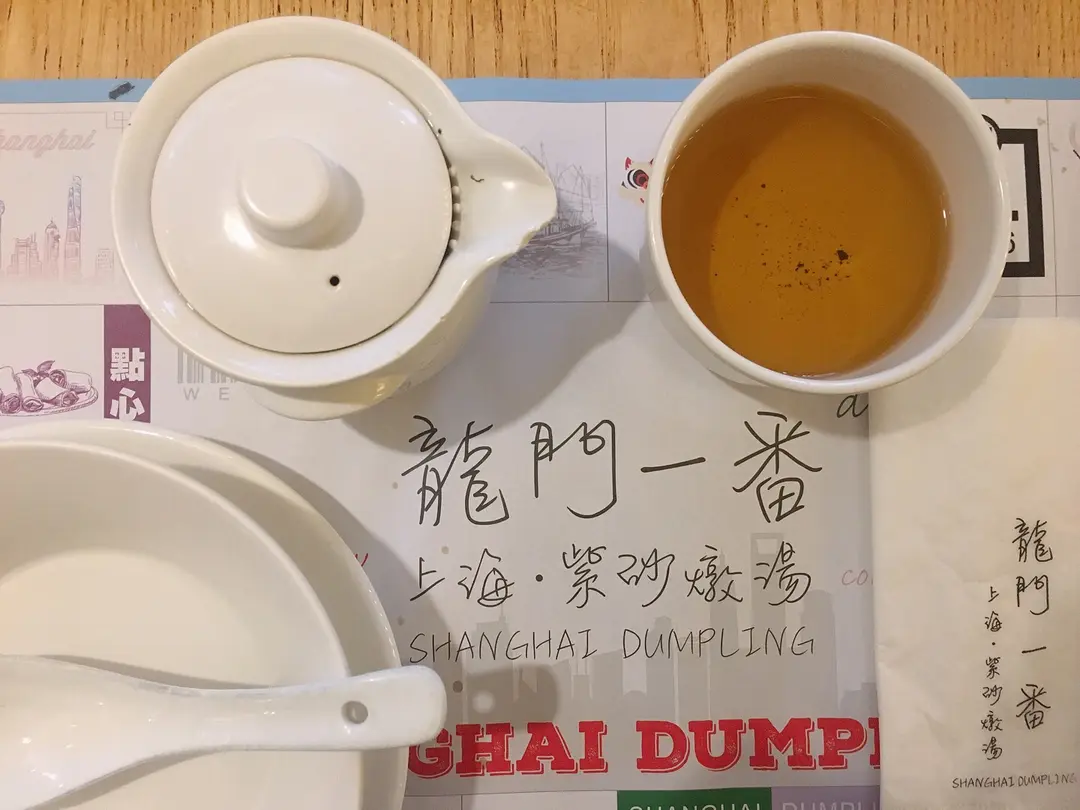 hanghai
點心
WE
龍門一番
上海·紫砂燉湯
SHANGHAI DUMPLING
GHAI DUMPL
SHANGHAI DUMPLING
龍門一番
上海·紫砂燉湯
SHANGHAI DUMPLING